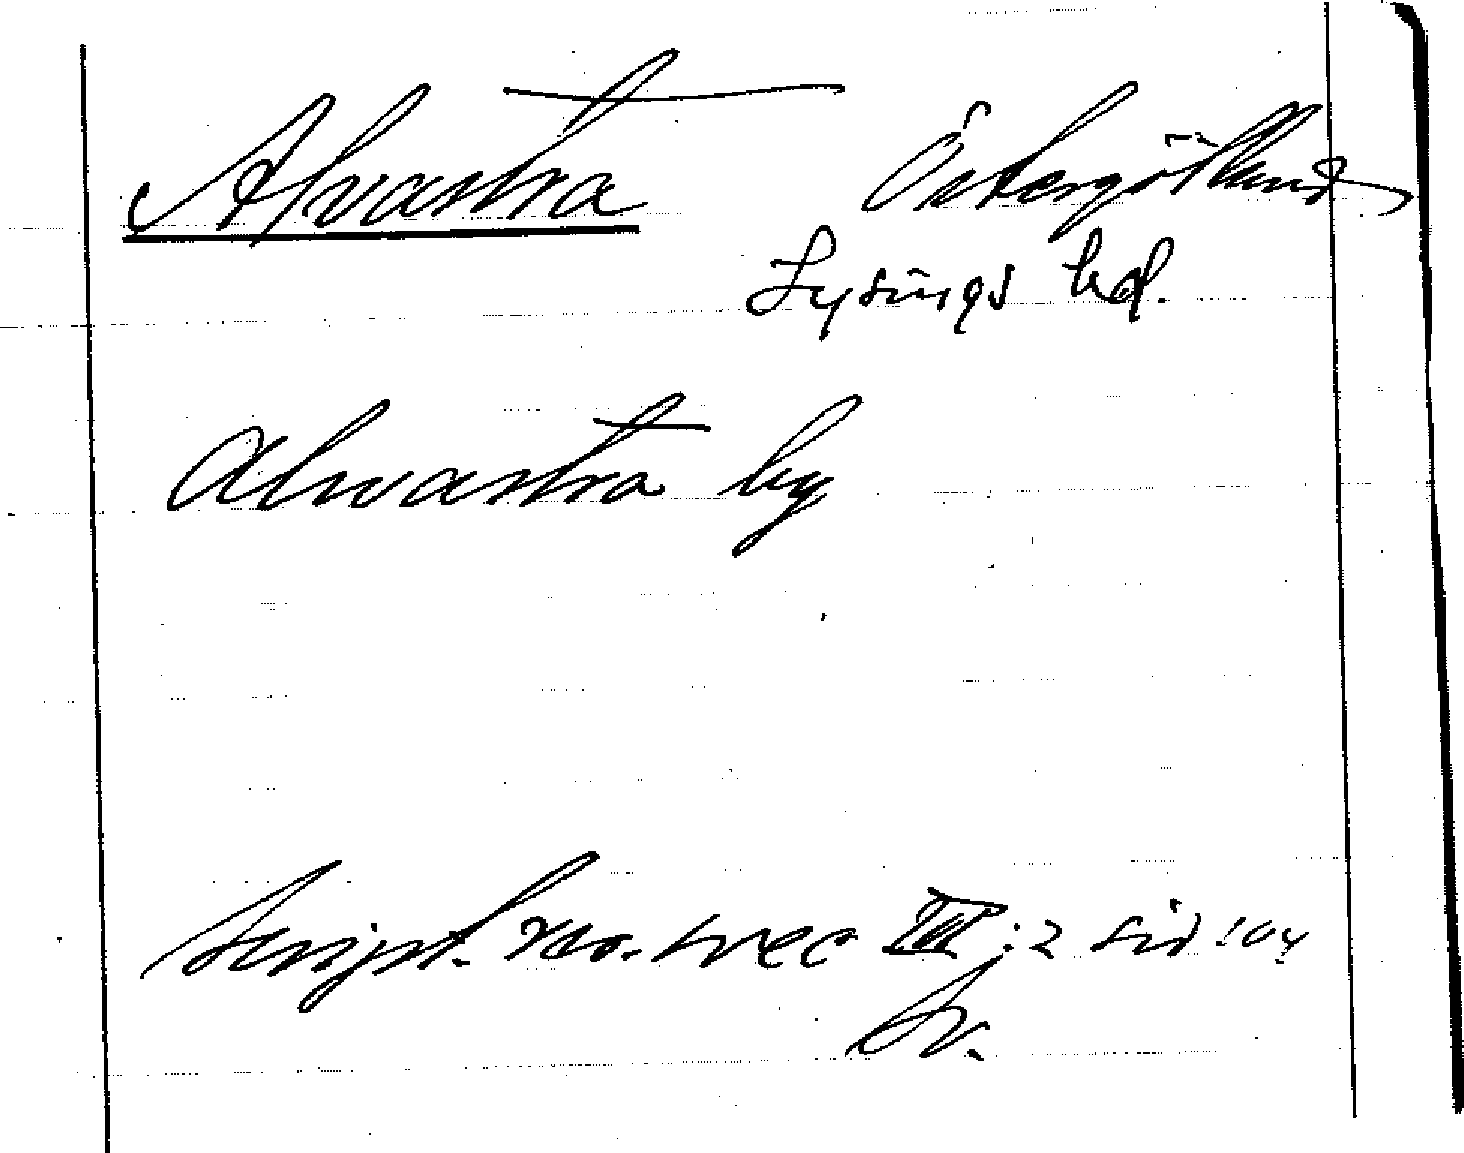 Alvastra Östergötland
Lysings hd.
Alwastra by
Script. rer. svec III:2 sid 104
Sv.